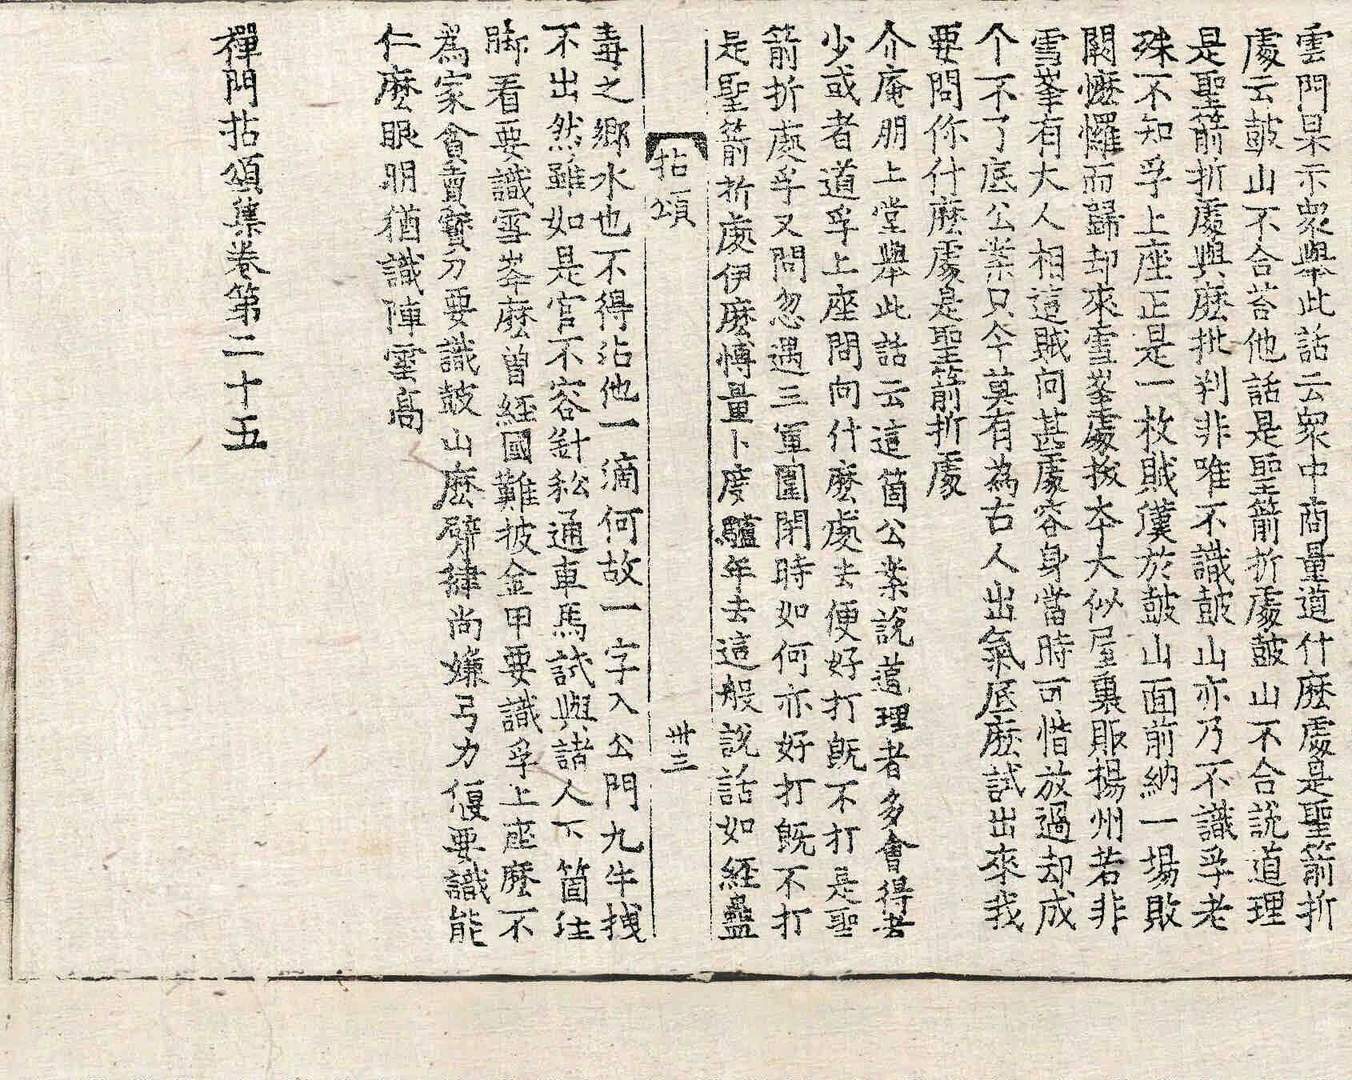 雲門杲示衆舉此話云衆中商量道什麽處是聖箭折
處云皷山不合荅他話是聖箭折處皷山不合說道理
是聖箭折處與麽批判非唯不識皷山亦乃不識孚老
殊不知孚上座正是一枚賊漢於皷山面前納一場敗
闕懡㦬而歸却來雪峯處拔本大似屋裏販揚州若非
雪峯有大人相這賊向甚處容身當時可惜放過却成
个不了底公案只今莫有為古人出氣底麽試出來我
要問你什麽處是聖箭折處
介庵朋上堂舉此話云這箇公案說道理者多會得者
少或者道孚上座問向什麽處去便好打旣不打是聖
箭折處孚又問忽遇三軍圍閉時如何亦好打旣不打
是聖箭折處伊麽愽量卜度驢年去這般說話如經蠱
拈頌
卅三
毒之鄉水也不得沾他一滴何故一字入公門九牛拽
不出然雖如是官不容針私通車馬試與諸人下箇注
脚看要識雪峯麽曽經國難披金甲要識孚上座麽不
為家貪賣寳刀要識皷山麽劈 尚嫌弓力偃要識能
仁麽眼明猶識陣雲高
禪門拈頌集卷第二十五